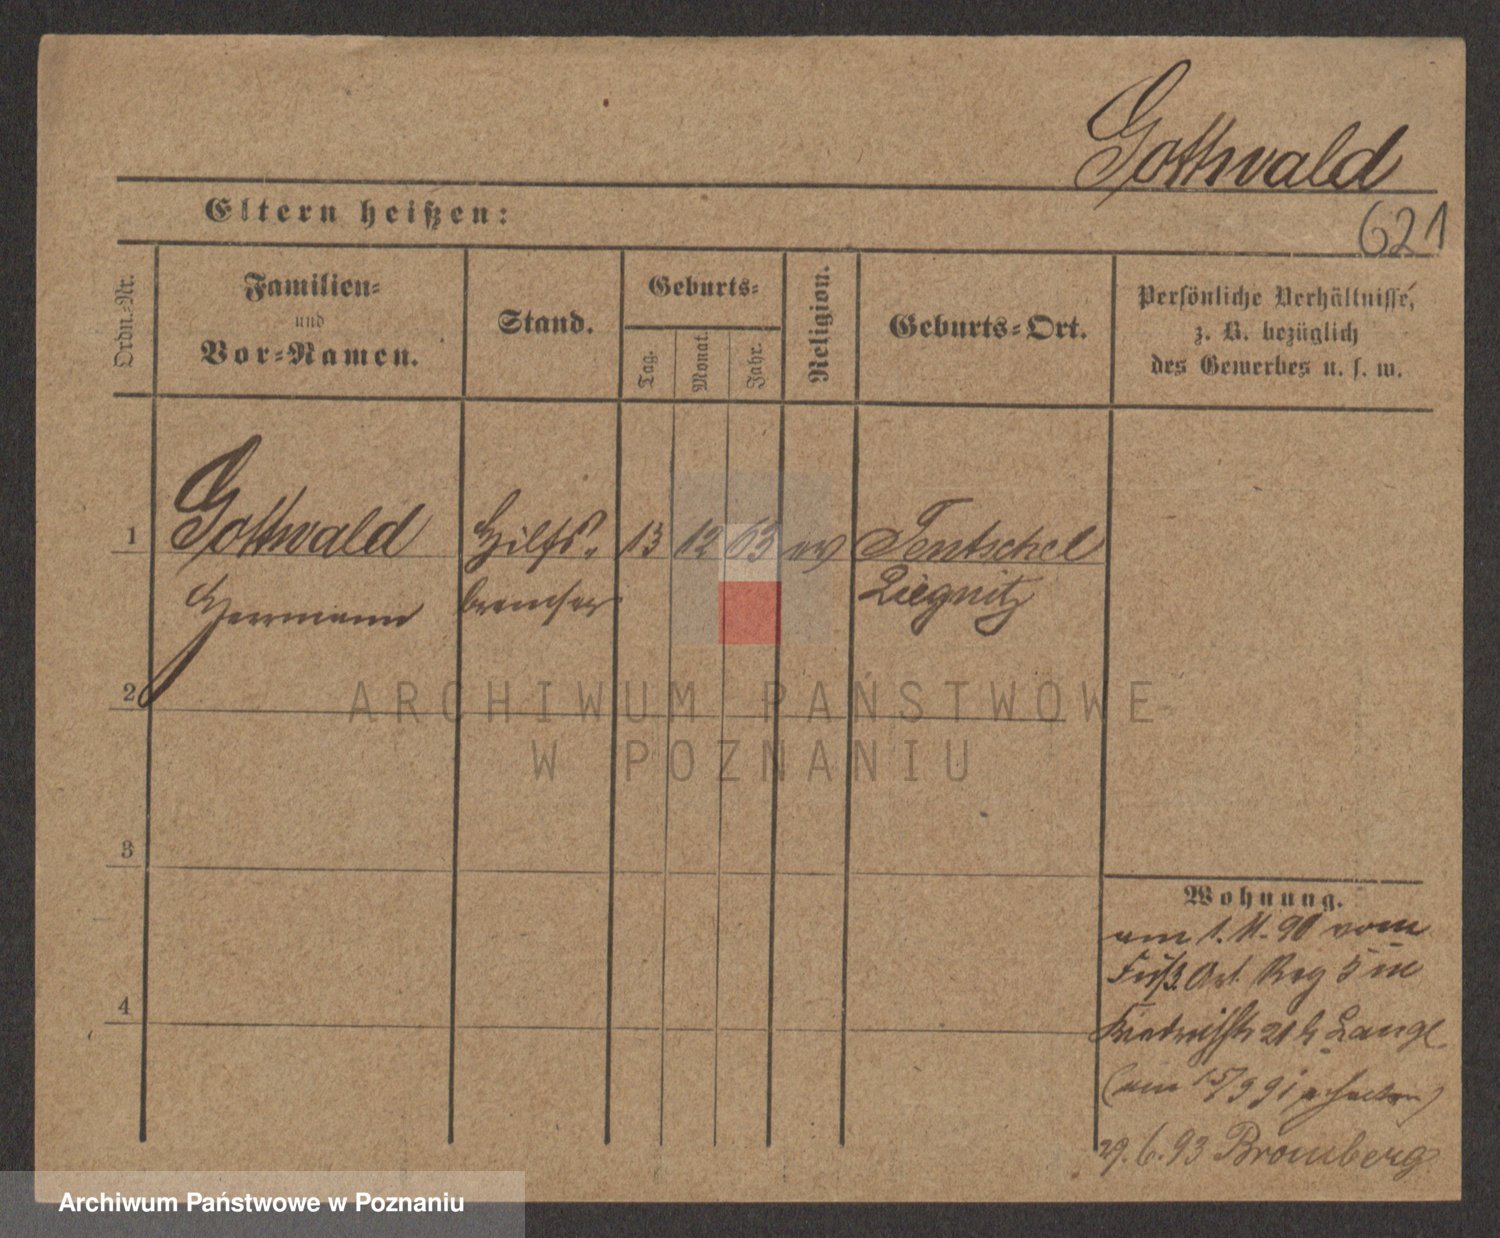 Gottwald
621
Eltern heißen:
Ordn.-Nr.
Familien-
und
Vor-Namen.
Stand.
Geburts-
Tag.
Monat.
Jahr.
Religion.
Geburts-Ort.
Persönliche Verhältnisse,
z. B. bezüglich
des Gewerbes u. s. w.
1 Gottwald Hilfs- 13 12 63 ev Tentschel
Herrmann bremser Liegnitz
2
ARCHIWUM PAŃSTWOWE
W POZNANIU
3
Wohnung.
am 1. 11. 90 vom
Fuß. Art. Reg 5 in
4
Friedrichstr 21 b. Lange
(am 15/9 91)
29. 6. 93 Bromberg
Archiwum Państwowe w Poznaniu